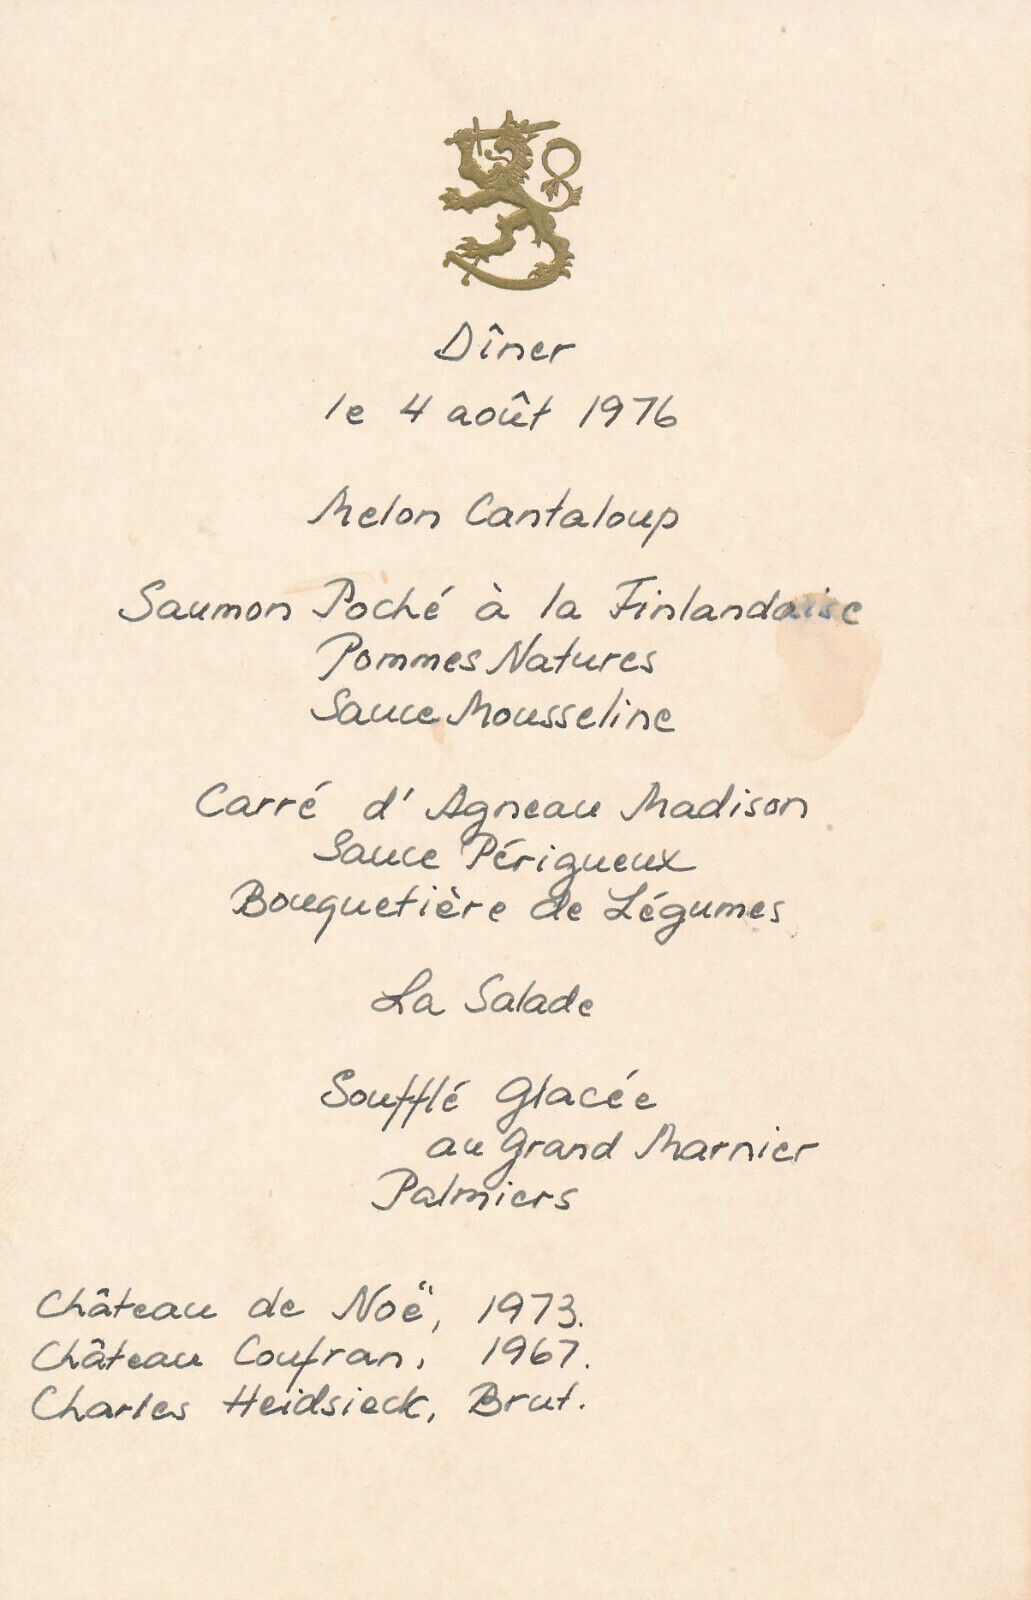 Dîner
le 4 août 1976
Melon Cantaloup
Saumon Poché à la Finlandaise
Pommes Natures
Sauce Mousseline
Carré d'Agneau Madison
Sauce Périgueux
Bouquetière de Légumes
La Salade
Soufflé Glacée
au Grand Marnier
Palmiers
Château de Noë, 1973.
Château Coufran, 1967.
Charles Heidsieck, Brut.